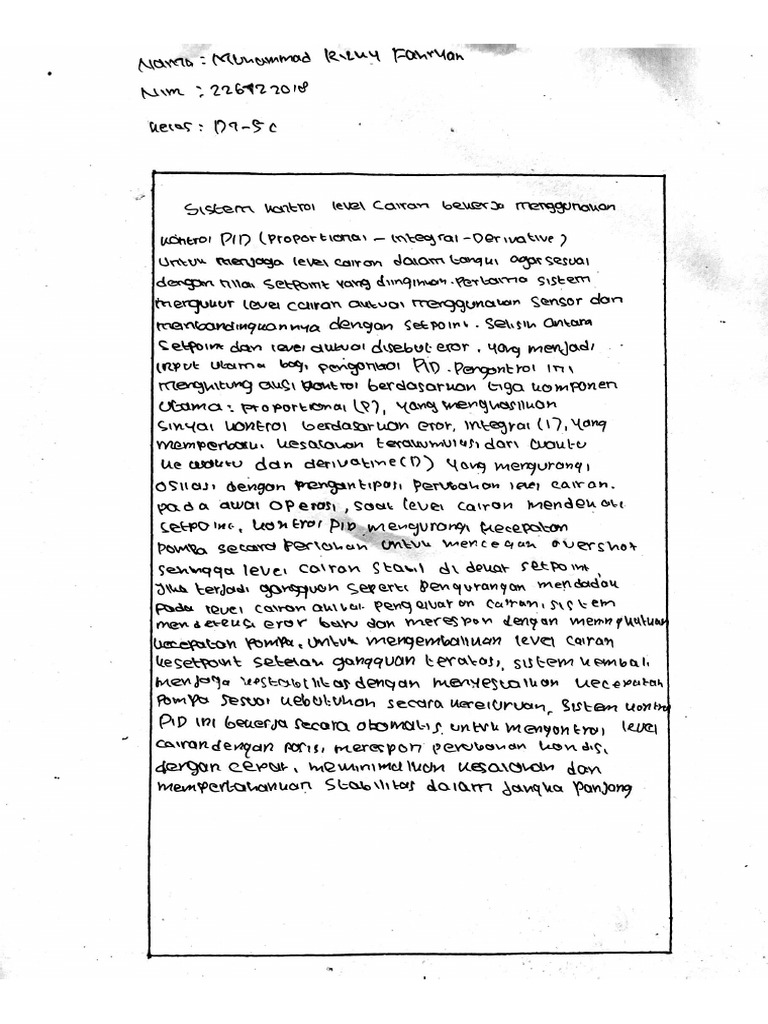 Nama : Muhammad Rizky Fahryan
Nim : 226422018
Kelas : D4-5c
Sistem kontrol level Cairan bekerja menggunakan
kontrol PID (Proportional – Integral - Derivative)
Untuk menjaga level cairan dalam tangki agar sesuai
dengan nilai Setpoint yang diinginkan. Pertama sistem
mengukur level cairan aktual menggunakan sensor dan
membandingkannya dengan setpoint. Selisih antara
Setpoint dan level aktual disebut eror, yang menjadi
input utama bagi pengontrol PID. Pengontrol ini
menghitung aksi kontrol berdasarkan tiga komponen
Utama : proportional (P), yang menghasilkan
sinyal kontrol berdasarkan eror, integral (I), yang
memperbaiki kesalahan terakumulasi dari waktu
ke waktu dan derivative (D) yang mengurangi
osilasi dengan mengantipasi perubahan level cairan.
pada awal operasi, saat level cairan mendekati
setpoint, kontrol PID mengurangi kecepatan
Pompa secara perlahan untuk mencegah overshot
sehingga level cairan stabil di dekat setpoint,
jika terjadi gangguan seperti pengurangan mendadak
pada level cairan akibat pengeluaran cairan, sistem
mendeteksi eror baru dan merespon dengan meningkatkan
kecepatan pompa, untuk mengembalikan level cairan
kesetpoint setelah gangguan teratasi, sistem kembali
menjaga kestabilitas dengan menyesuaikan kecepatan
Pompa sesuai kebutuhan secara keseluruhan, sistem kontrol
PID ini bekerja secara otomatis untuk mengontrol level
cairan dengan presisi, merespon perubahan kondisi
dengan cepat, meminimalkan kesalahan dan
mempertahankan Stabilitas dalam jangka panjang